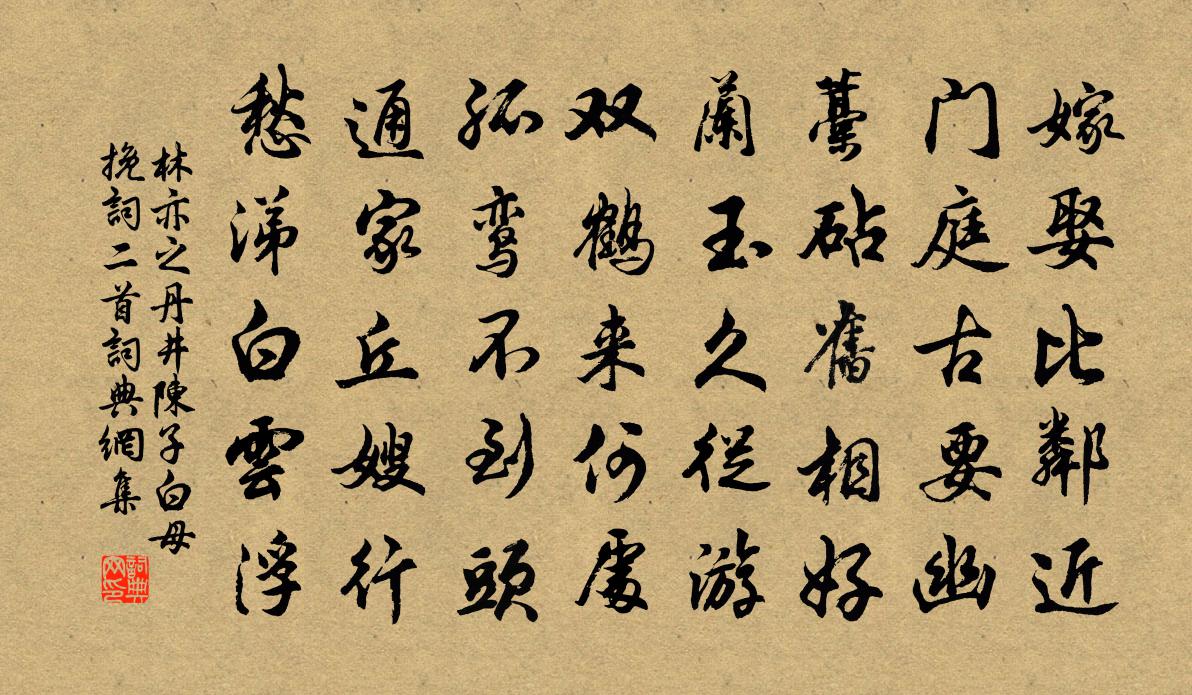 嫁娶比鄰近
门庭古要幽
藁砧舊相好
蘭玉久從游
双鶴来何處
孤鸾不到頭
通家丘嫂行
愁涕白雲浮
林亦之丹井陳子白母
挽詞二首詞典網集
詞典
网印